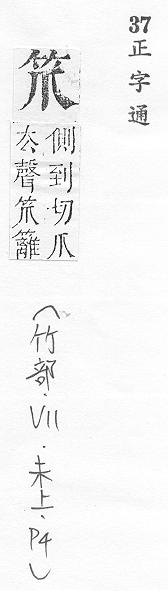 37正字通
笊
側到切爪
厺聲笊籬
(竹部.VII.未上.P4)